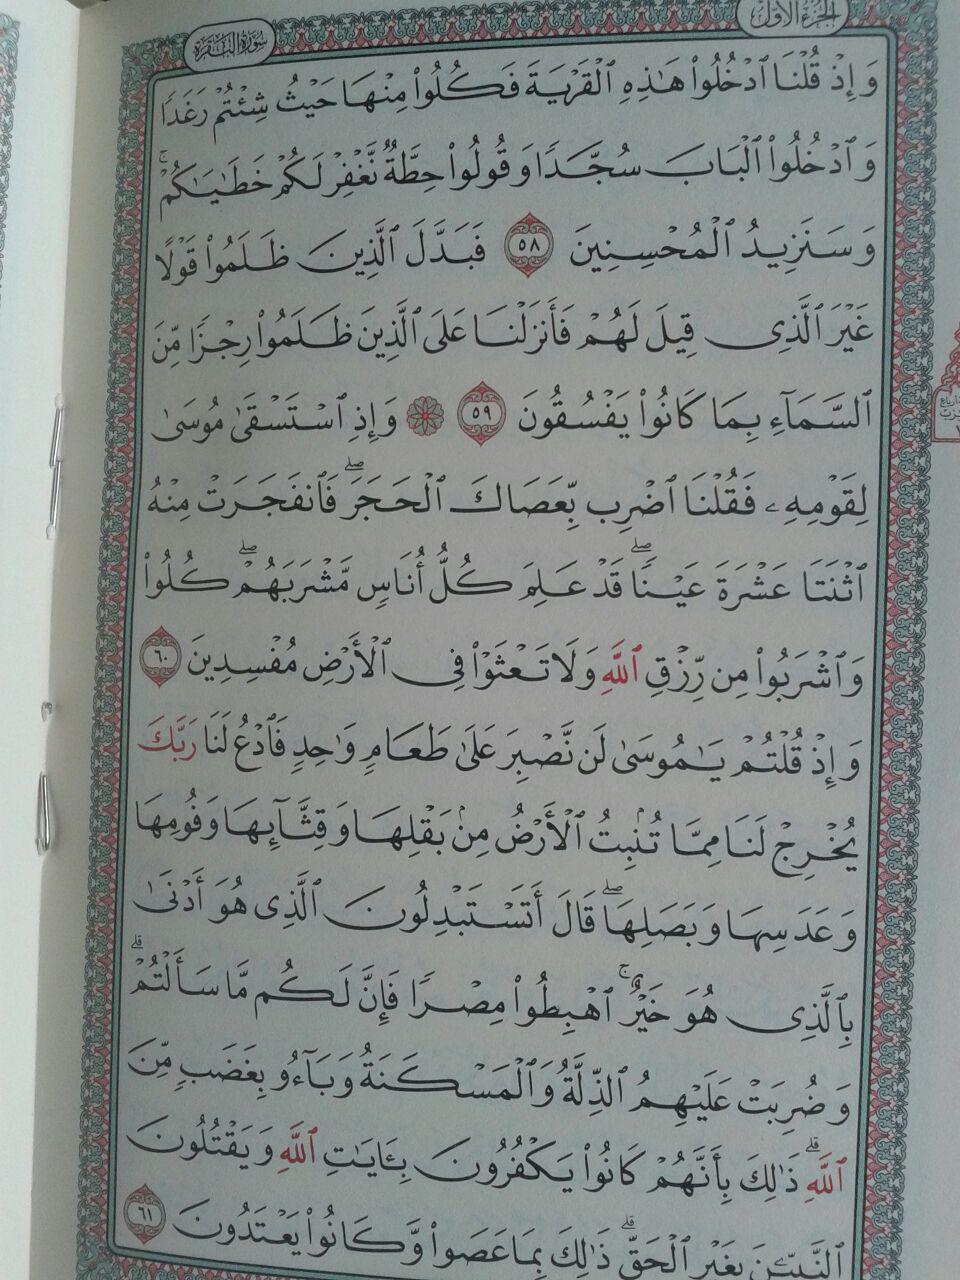 الجزء الأول
سورة البقرة
وَإِذْ قُلْنَا ٱدْخُلُوا۟ هَٰذِهِ ٱلْقَرْيَةَ فَكُلُوا۟ مِنْهَا حَيْثُ شِئْتُمْ رَغَدًا
وَٱدْخُلُوا۟ ٱلْبَابَ سُجَّدًا وَقُولُوا۟ حِطَّةٌ نَّغْفِرْ لَكُمْ خَطَٰيَٰكُمْ ۚ
وَسَنَزِيدُ ٱلْمُحْسِنِينَ ٥٨ فَبَدَّلَ ٱلَّذِينَ ظَلَمُوا۟ قَوْلًا
غَيْرَ ٱلَّذِى قِيلَ لَهُمْ فَأَنزَلْنَا عَلَى ٱلَّذِينَ ظَلَمُوا۟ رِجْزًا مِّنَ
ٱلسَّمَآءِ بِمَا كَانُوا۟ يَفْسُقُونَ ٥٩ وَإِذِ ٱسْتَسْقَىٰ مُوسَىٰ
لِقَوْمِهِۦ فَقُلْنَا ٱضْرِب بِّعَصَاكَ ٱلْحَجَرَ ۖ فَٱنفَجَرَتْ مِنْهُ
ٱثْنَتَا عَشْرَةَ عَيْنًا ۖ قَدْ عَلِمَ كُلُّ أُنَاسٍ مَّشْرَبَهُمْ ۖ كُلُوا۟
وَٱشْرَبُوا۟ مِن رِّزْقِ ٱللَّهِ وَلَا تَعْثَوْا۟ فِى ٱلْأَرْضِ مُفْسِدِينَ ٦٠
وَإِذْ قُلْتُمْ يَٰمُوسَىٰ لَن نَّصْبِرَ عَلَىٰ طَعَامٍ وَٰحِدٍ فَٱدْعُ لَنَا رَبَّكَ
يُخْرِجْ لَنَا مِمَّا تُنۢبِتُ ٱلْأَرْضُ مِنۢ بَقْلِهَا وَقِثَّآئِهَا وَفُومِهَا
وَعَدَسِهَا وَبَصَلِهَا ۖ قَالَ أَتَسْتَبْدِلُونَ ٱلَّذِى هُوَ أَدْنَىٰ
بِٱلَّذِى هُوَ خَيْرٌ ۚ ٱهْبِطُوا۟ مِصْرًا فَإِنَّ لَكُم مَّا سَأَلْتُمْ ۗ
وَضُرِبَتْ عَلَيْهِمُ ٱلذِّلَّةُ وَٱلْمَسْكَنَةُ وَبَآءُو بِغَضَبٍ مِّنَ
ٱللَّهِ ۗ ذَٰلِكَ بِأَنَّهُمْ كَانُوا۟ يَكْفُرُونَ بِـَٔايَٰتِ ٱللَّهِ وَيَقْتُلُونَ
ٱلنَّبِيِّـۧنَ بِغَيْرِ ٱلْحَقِّ ۗ ذَٰلِكَ بِمَا عَصَوا۟ وَّكَانُوا۟ يَعْتَدُونَ ٦١